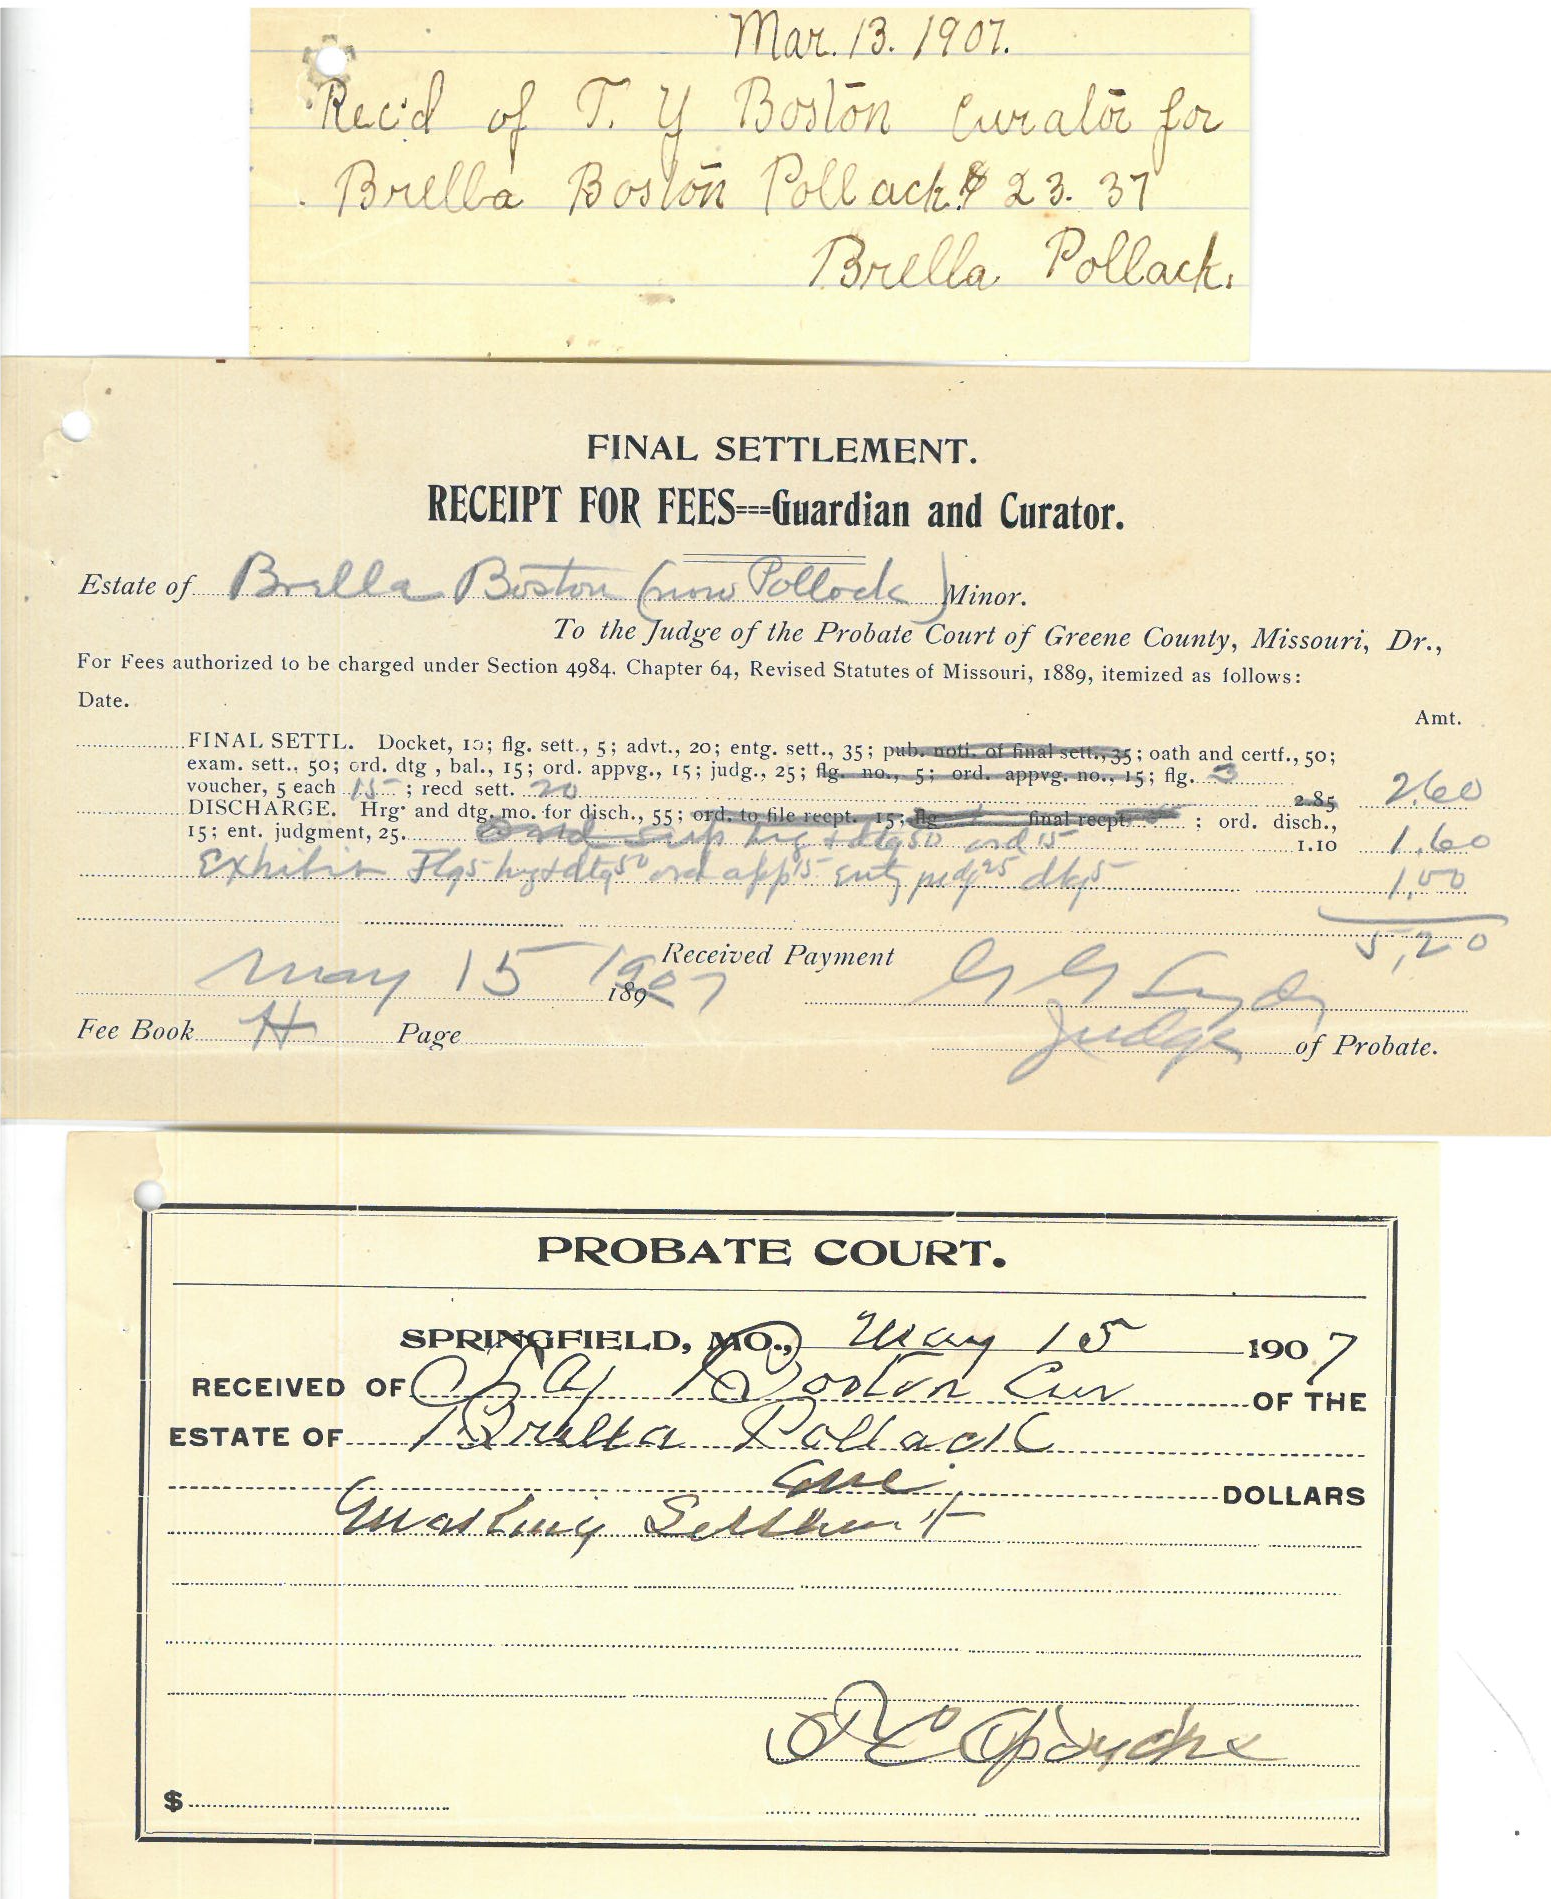 Mar. 13. 1907.
Rec'd of T. Y Boston Curator for
Brella Boston Pollack $23.37
Brella Pollack.
FINAL SETTLEMENT.
RECEIPT FOR FEES===Guardian and Curator.
Estate of Brella Boston (now Pollock) Minor.
To the Judge of the Probate Court of Greene County, Missouri, Dr.,
For Fees authorized to be charged under Section 4984, Chapter 64, Revised Statutes of Missouri, 1889, itemized as follows:
Date.
Amt.
FINAL SETTL. Docket, 10; flg. sett., 5; advt., 20; entg. sett., 35; pub. noti. of final sett., 35; oath and certf., 50;
exam. sett., 50; ord. dtg, bal., 15; ord. appvg., 15; judg., 25; flg. no., 5; ord. appvg. no., 15; flg. 3
voucher, 5 each 15; recd sett. 20 2.85 2.60
DISCHARGE. Hrg. and dtg. mo. for disch., 55; ord. to file recpt. 15; flg final recpt. ; ord. disch.,
15; ent. judgment, 25. hrg + dtg 50 ord 15 1.10 1.60
Exhibit Flg 5 hrg + dtg 50 ord app 15 entg judg 25 dkg 5 1.00
5.20
May 15 1907 189 Received Payment
Fee Book H Page Judge of Probate.
PROBATE COURT.
SPRINGFIELD, MO., May 15 1907
RECEIVED OF T Y Boston Cur OF THE
ESTATE OF Brella Pollack
One DOLLARS
making Settlement
$